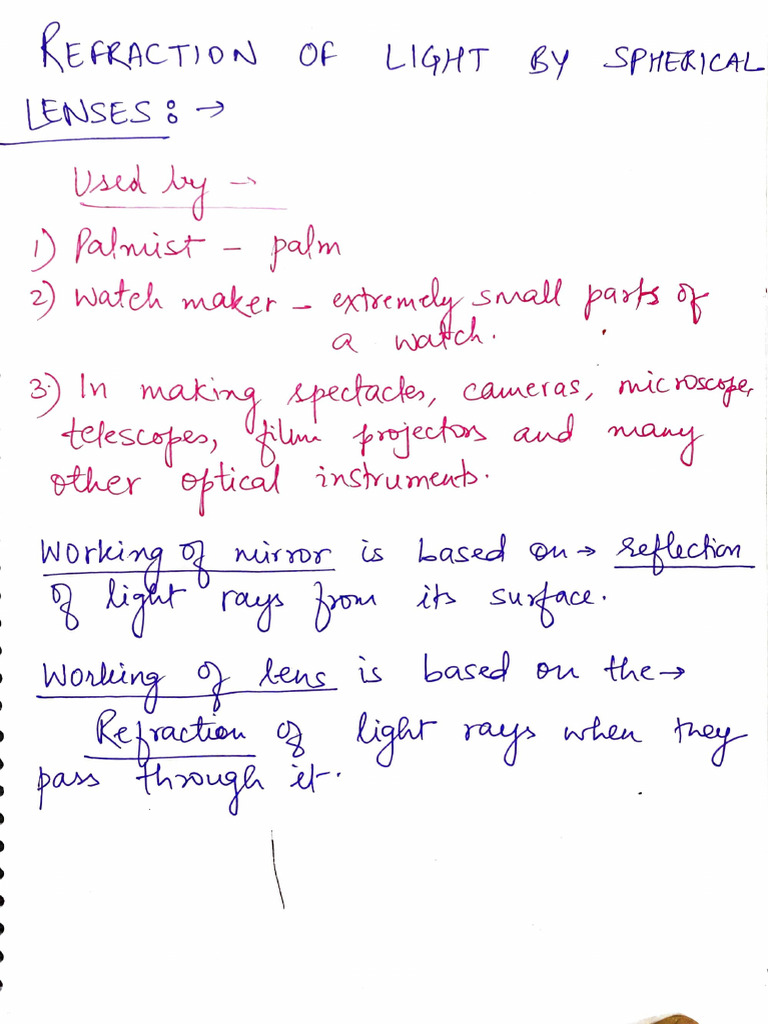 REFRACTION OF LIGHT BY SPHERICAL
LENSES:→
Used by →
1) Palmist - palm
2) Watch maker - extremely small parts of
a watch.
3) In making spectacles, cameras, microscope,
telescopes, film projectors and many
other optical instruments.
Working of mirror is based on → reflection
of light rays from its surface.
Working of lens is based on the →
Refraction of light rays when they
pass through it.